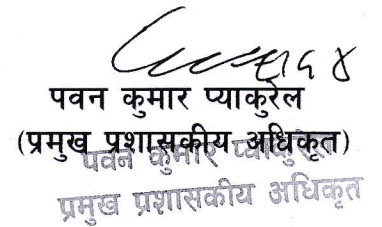 पवन कुमार प्याकुरेल
(प्रमुख प्रशासकीय अधिकृत)
पवन कुमार प्याकुरेल
प्रमुख प्रशासकीय अधिकृत